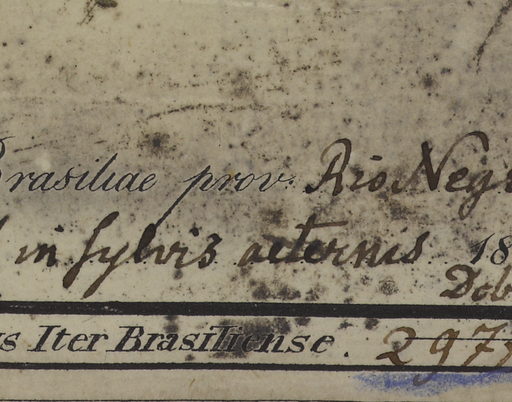 Brasiliae prov. Rio Neg
in sylvis aeternis 18
Dob
s Iter Brasiliense. 297